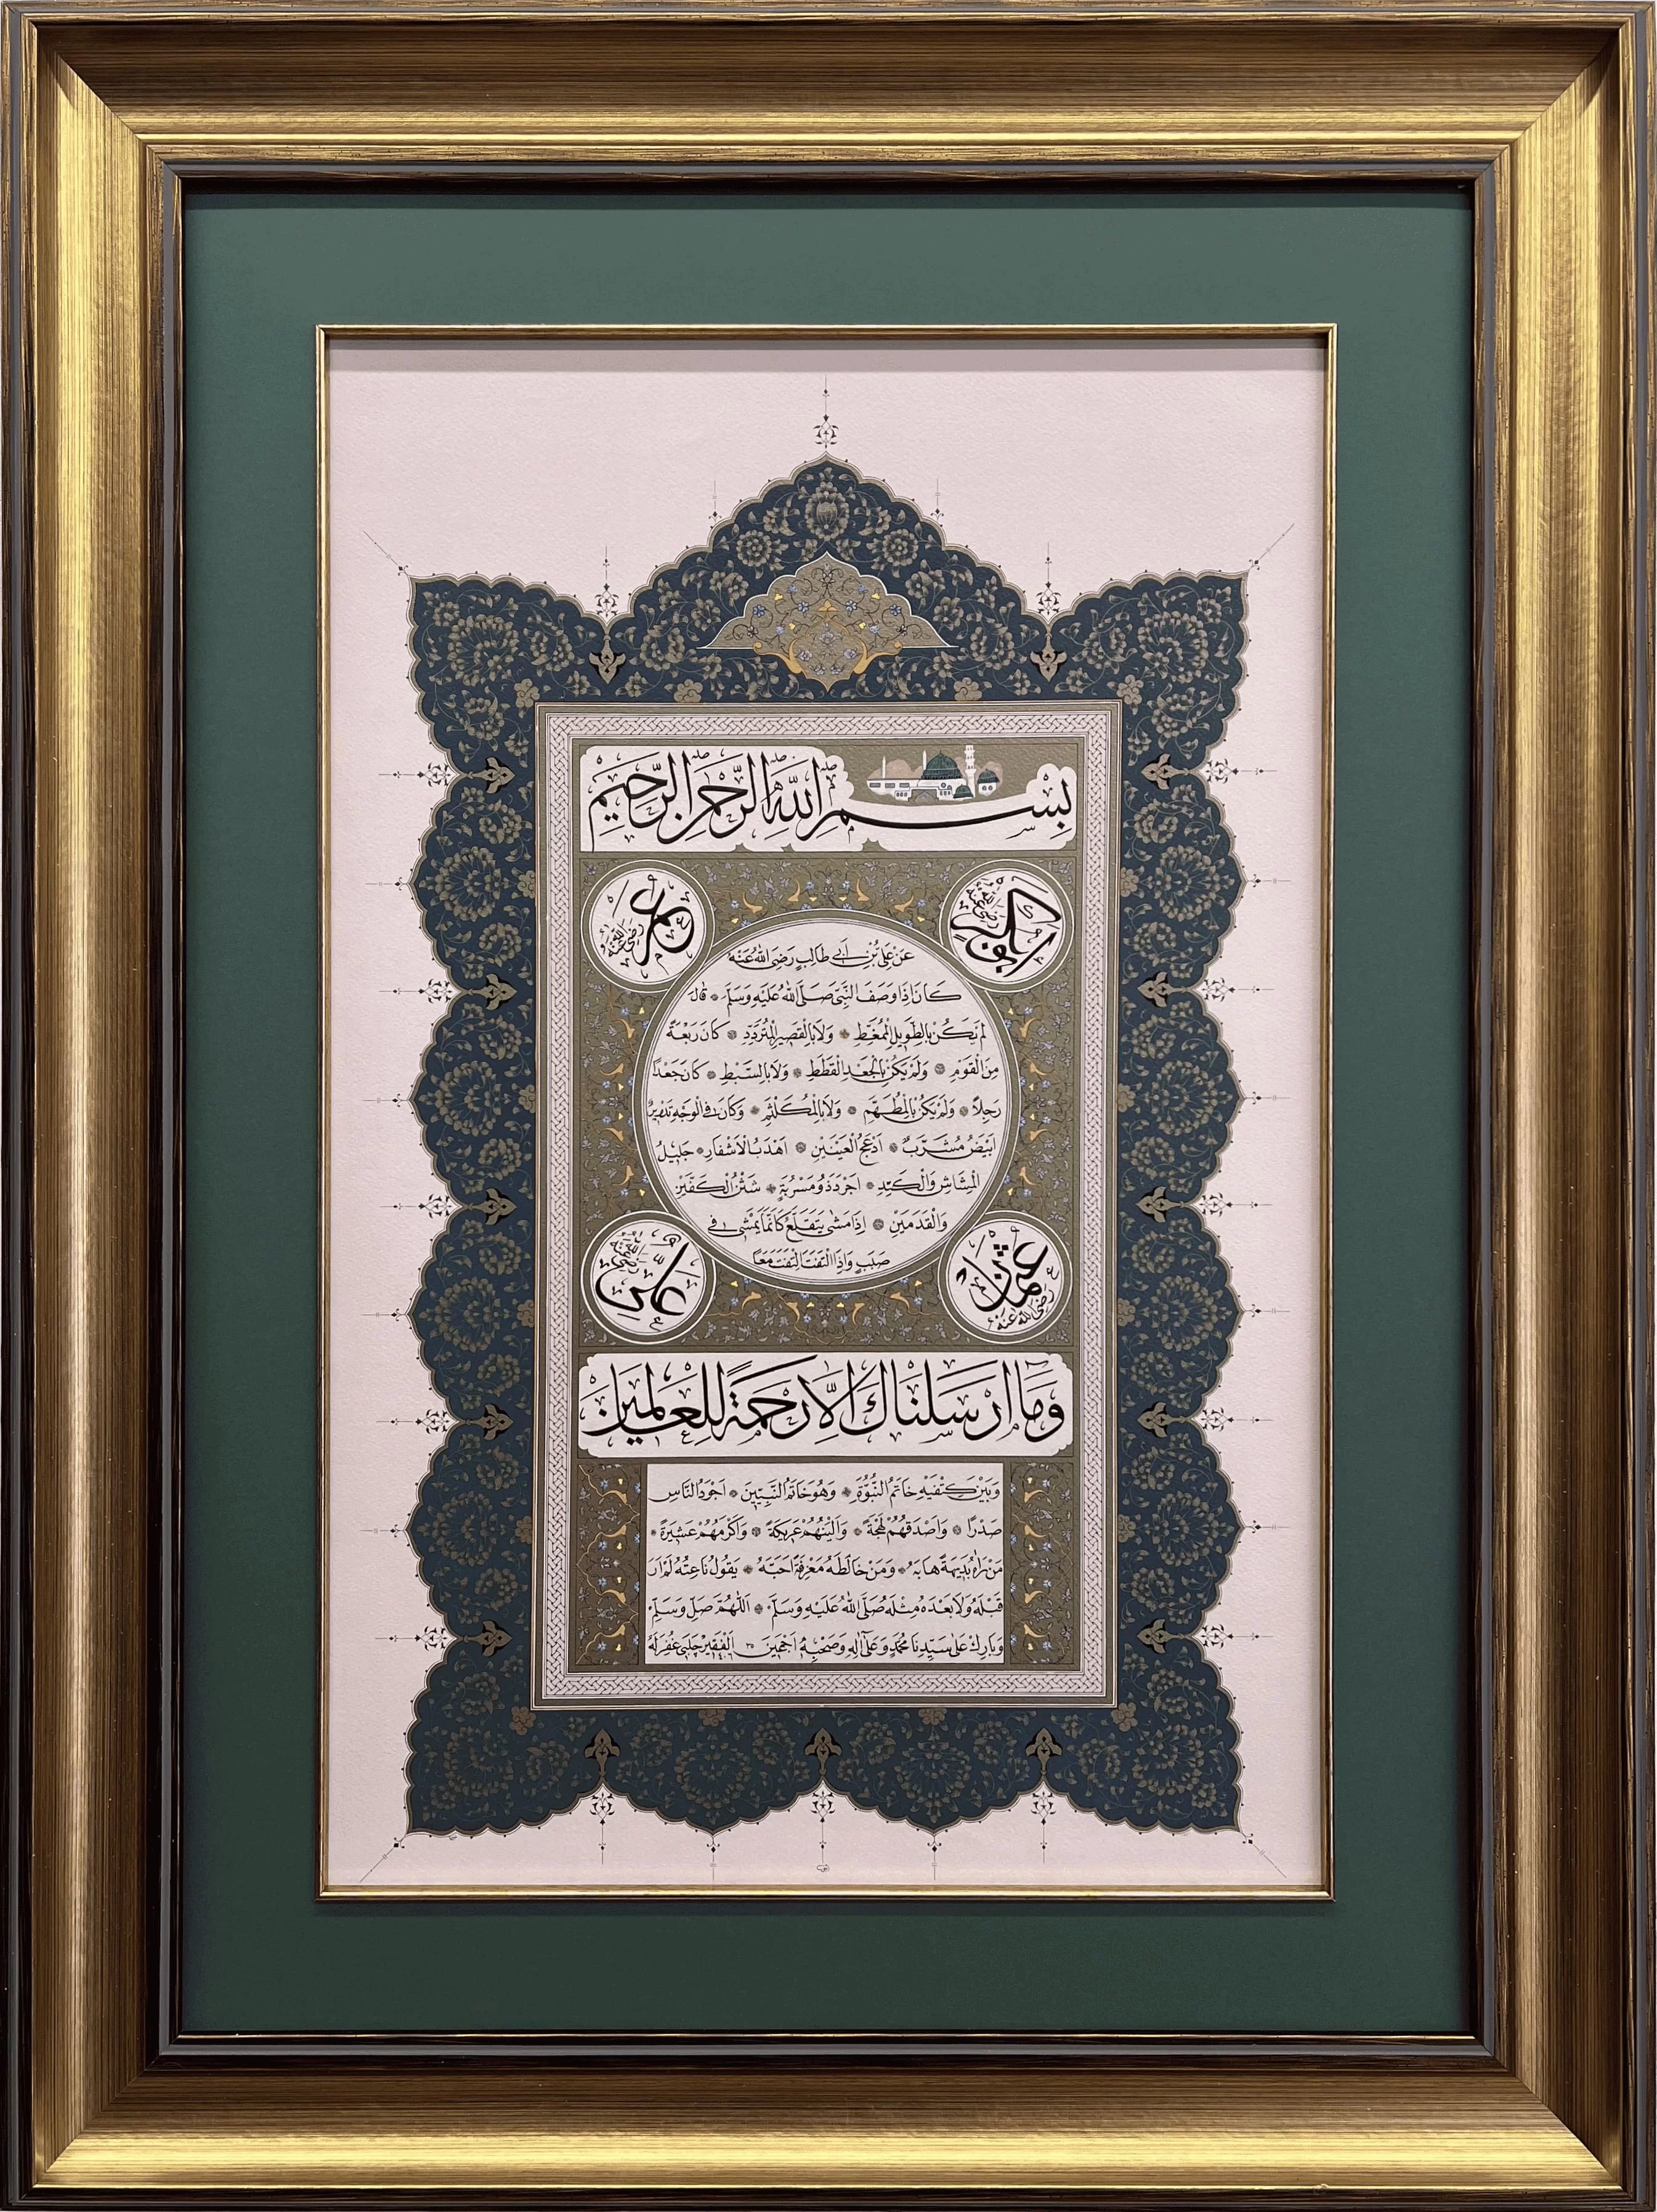 بِسْمِ اللّٰهِ الرَّحْمٰنِ الرَّحِيمِ
ابو بكر رضي الله عنه
عمر رضي الله عنه
عَنْ عَلِيِّ بْنِ اَبِي طَالِبٍ رَضِيَ اللّٰهُ عَنْهُ
كَانَ اِذَا وَصَفَ النَّبِيَّ صَلَّى اللّٰهُ عَلَيْهِ وَسَلَّمَ ۞ قَالَ
لَمْ يَكُنْ بِالطَّوِيلِ الْمُمَّغِطِ ۞ وَلَا بِالْقَصِيرِ الْمُتَرَدِّدِ ۞ كَانَ رَبْعَةً
مِنَ الْقَوْمِ ۞ وَلَمْ يَكُنْ بِالْجَعْدِ الْقَطَطِ ۞ وَلَا بِالسَّبْطِ ۞ كَانَ جَعْدًا
رَجِلًا ۞ وَلَمْ يَكُنْ بِالْمُطَهَّمِ ۞ وَلَا بِالْمُكَلْثَمِ ۞ وَكَانَ فِي الْوَجْهِ تَدْوِيرٌ
اَبْيَضُ مُشَرَّبٌ ۞ اَدْعَجُ الْعَيْنَيْنِ ۞ اَهْدَبُ الْاَشْفَارِ ۞ جَلِيلُ
الْمُشَاشِ وَالْكَتَدِ ۞ اَجْرَدُ ذُو مَسْرُبَةٍ ۞ شَثْنُ الْكَفَّيْنِ
وَالْقَدَمَيْنِ ۞ اِذَا مَشٰى يَتَقَلَّعُ كَاَنَّمَا يَمْشِي فِي
صَبَبٍ وَاِذَا الْتَفَتَ الْتَفَتَ مَعًا
عثمان رضي الله عنه
علي رضي الله عنه
وَمَا اَرْسَلْنَاكَ اِلَّا رَحْمَةً لِلْعَالَمِينَ
وَبَيْنَ كَتِفَيْهِ خَاتَمُ النُّبُوَّةِ ۞ وَهُوَ خَاتَمُ النَّبِيِّينَ ۞ اَجْوَدُ النَّاسِ
صَدْرًا ۞ وَاَصْدَقُهُمْ لَهْجَةً ۞ وَاَلْيَنُهُمْ عَرِيكَةً ۞ وَاَكْرَمُهُمْ عَشِيرَةً ۞
مَنْ رَاٰهُ بَدِيهَةً هَابَهُ ۞ وَمَنْ خَالَطَهُ مَعْرِفَةً اَحَبَّهُ ۞ يَقُولُ نَاعِتُهُ لَمْ اَرَ
قَبْلَهُ وَلَا بَعْدَهُ مِثْلَهُ صَلَّى اللّٰهُ عَلَيْهِ وَسَلَّمَ ۞ اَللّٰهُمَّ صَلِّ وَسَلِّمْ
وَبَارِكْ عَلٰى سَيِّدِنَا مُحَمَّدٍ وَعَلٰى اٰلِهِ وَصَحْبِهِ اَجْمَعِينَ ٣٥ اَلْفَقِيرُ چَلَبِى غُفِرَلَهُ ١٤٠٦